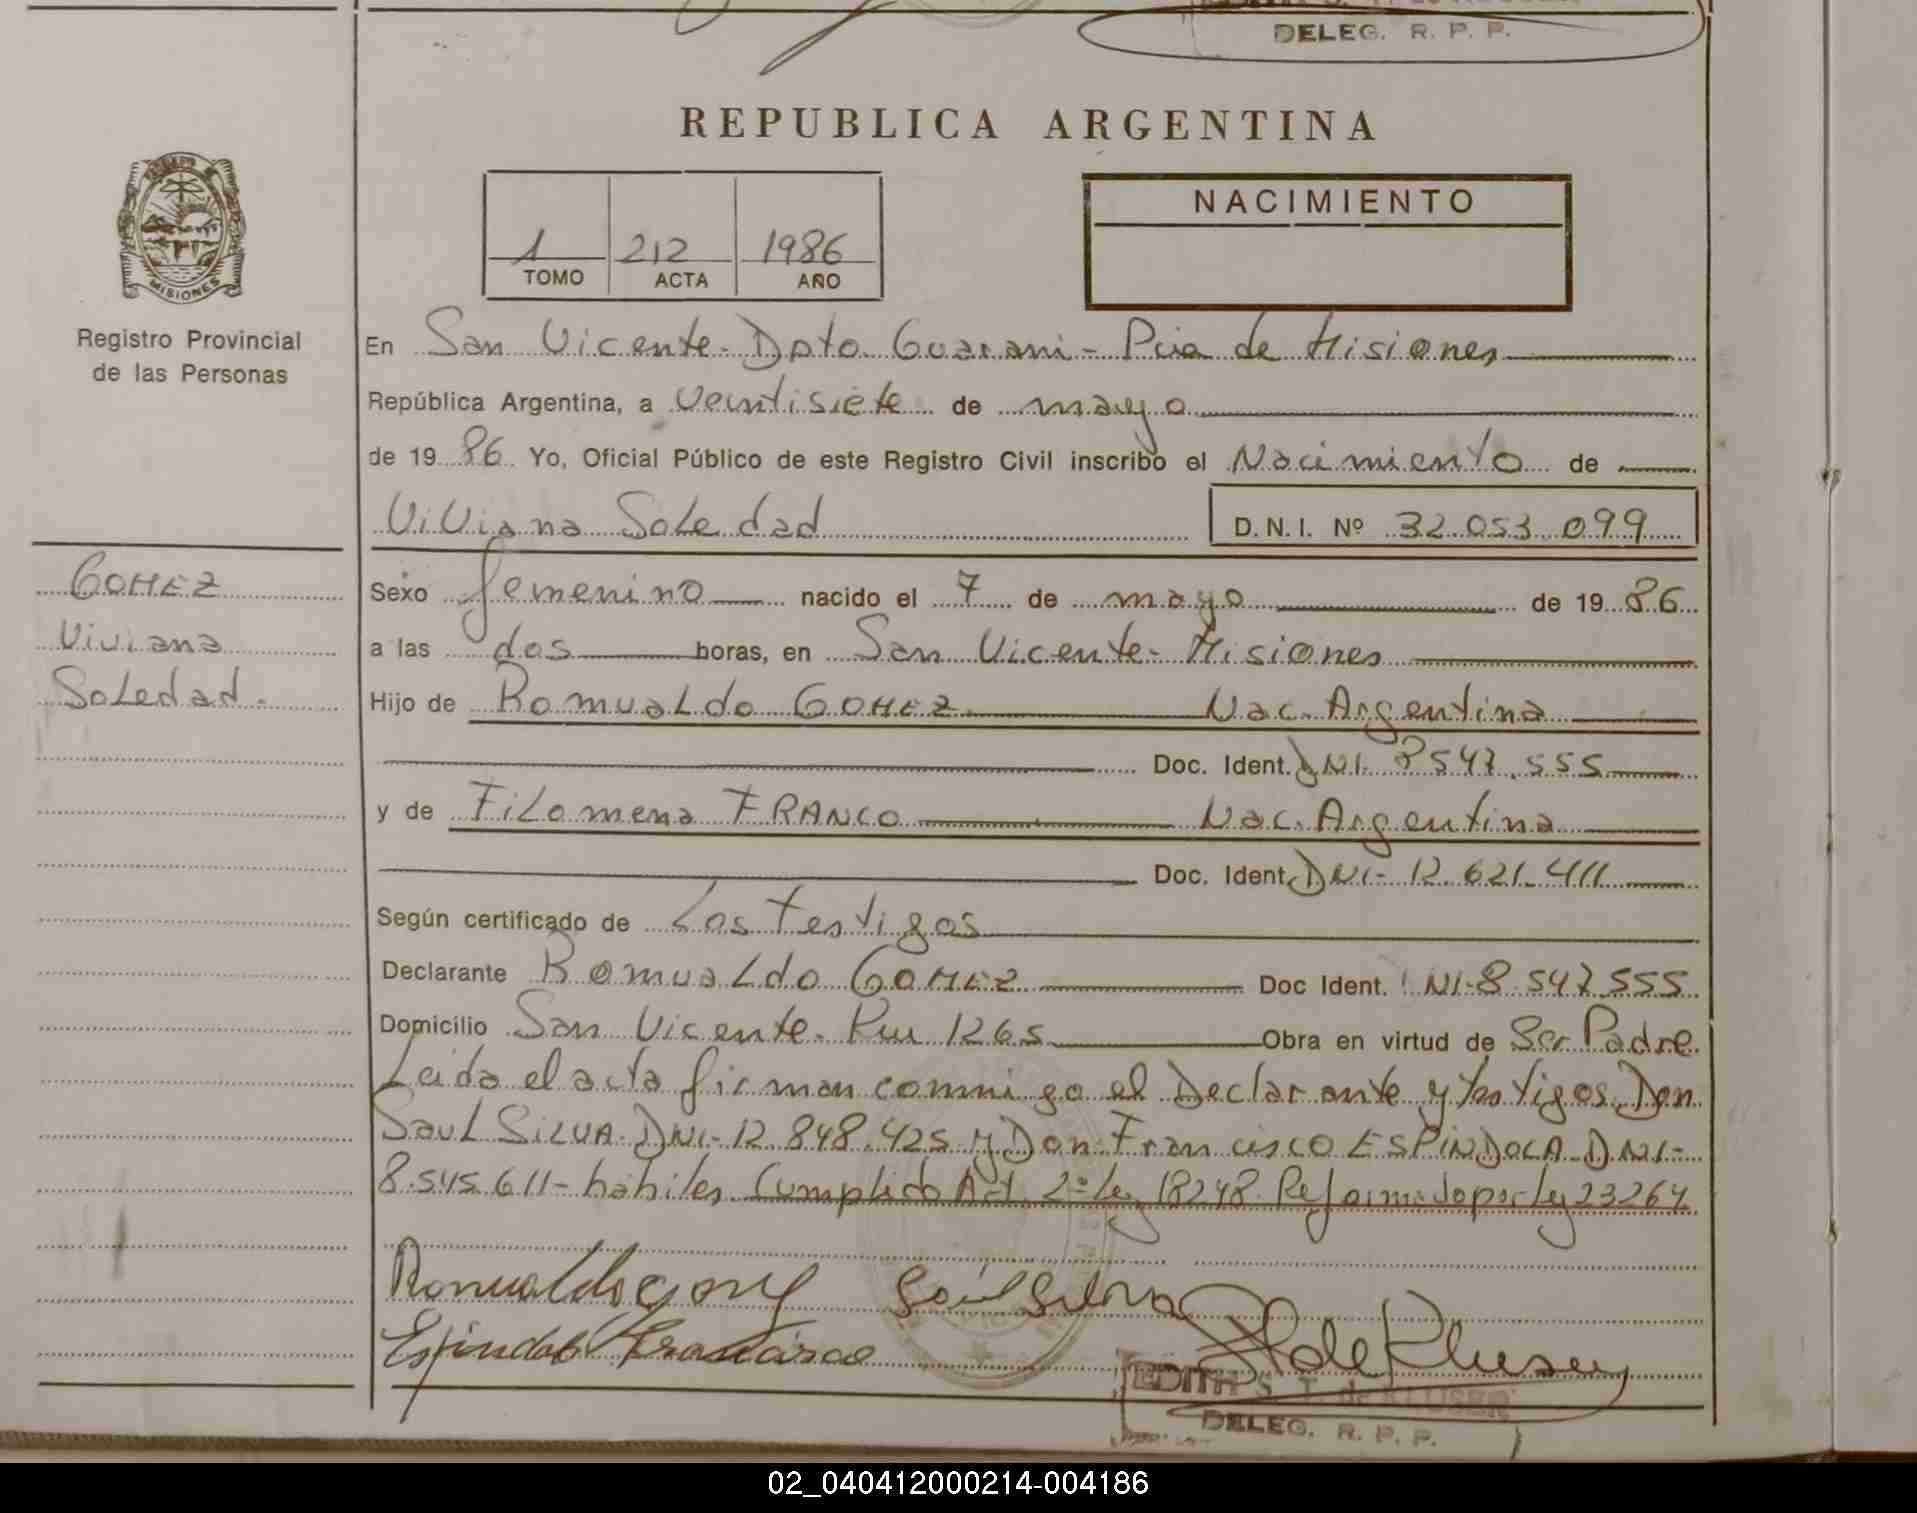 DELEG. R. P. P.
REPUBLICA ARGENTINA
1 212 1986
TOMO ACTA AÑO
NACIMIENTO
MISIONES
Registro Provincial
de las Personas
En San Vicente - Dpto Guarani - Pcia de Misiones
República Argentina, a veintisiete de mayo
de 1986 Yo, Oficial Público de este Registro Civil inscribo el Nacimiento de
Viviana Soledad D. N. I. Nº 32.053.099
GOMEZ
Viviana
Soledad.
Sexo femenino nacido el 7 de mayo de 1986
a las dos horas, en San Vicente - Misiones
Hijo de Romualdo GOMEZ Nac. Argentina
Doc. Ident. DNI. 8547.555
y de Filomena FRANCO Nac. Argentina
Doc. Ident. DNI- 12.621.411
Según certificado de Los Testigos
Declarante Romualdo GOMEZ Doc Ident. NI-8.547.555
Domicilio San Vicente - Km 1265 Obra en virtud de Ser Padre
Leida el acta firman conmigo el Declarante y testigos Don
Saul SILVA - DNI- 12.848.425 y Don Francisco ESPINDOLA DNI-
8.545.611- hábiles Cumplido Art. 2º Ley 18248. Reformado por Ley 23264
Romualdo gomez Saúl Silva
Espindola Francisco
EDITH S. T. de KLUSER
DELEG. R. P. P.
02_040412000214-004186